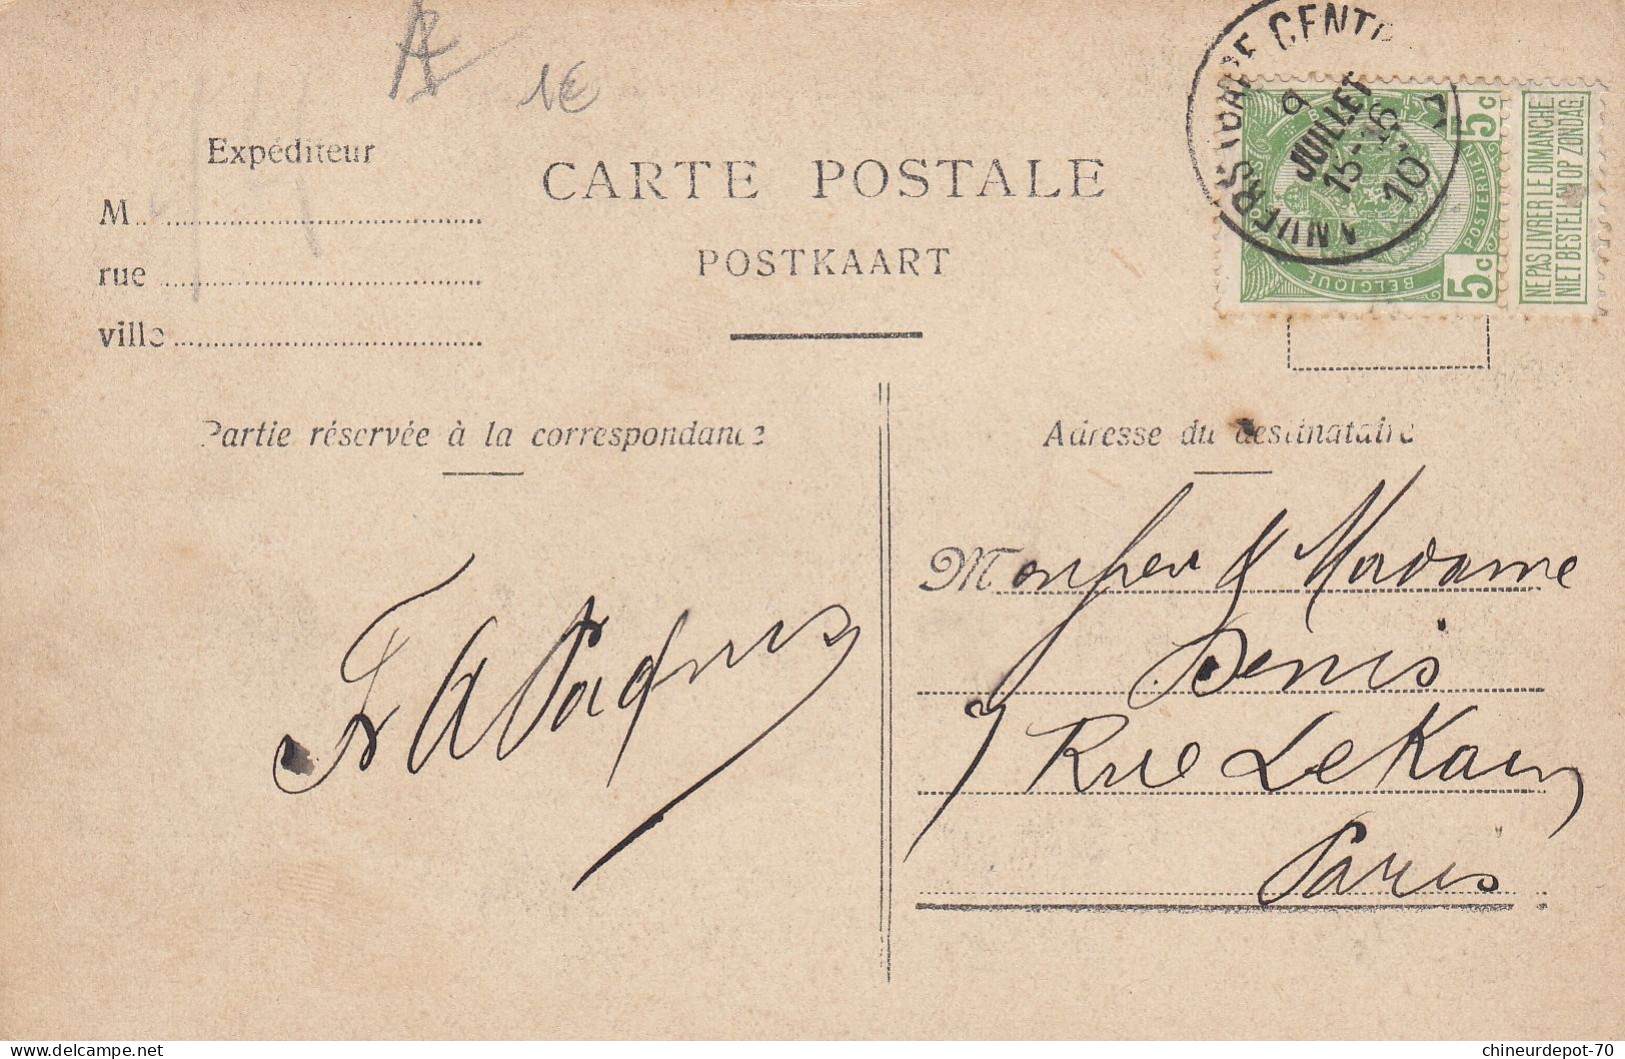 1€
Expéditeur
M
rue
ville
CARTE POSTALE
POSTKAART
9
JUILLET
15-16
10
BELGIQUE
POSTERIJEN
5c
5c
NE PAS LIVRER LE DIMANCHE
NIET BESTELLEN OP ZONDAG
Partie réservée à la correspondance
Adresse du destinataire
Monsieur & Madame
Denis
7 Rue LeKain
Paris
chineurdepot-70